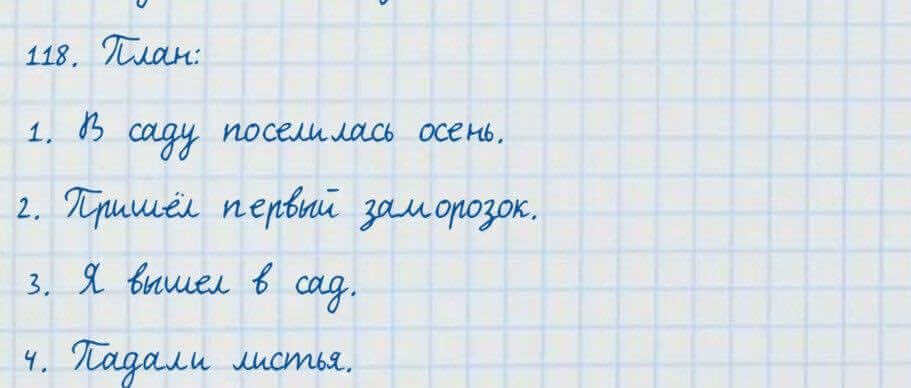 118. План:
1. В саду поселилась осень.
2. Пришёл первый заморозок.
3. Я вышел в сад.
4. Падали листья.